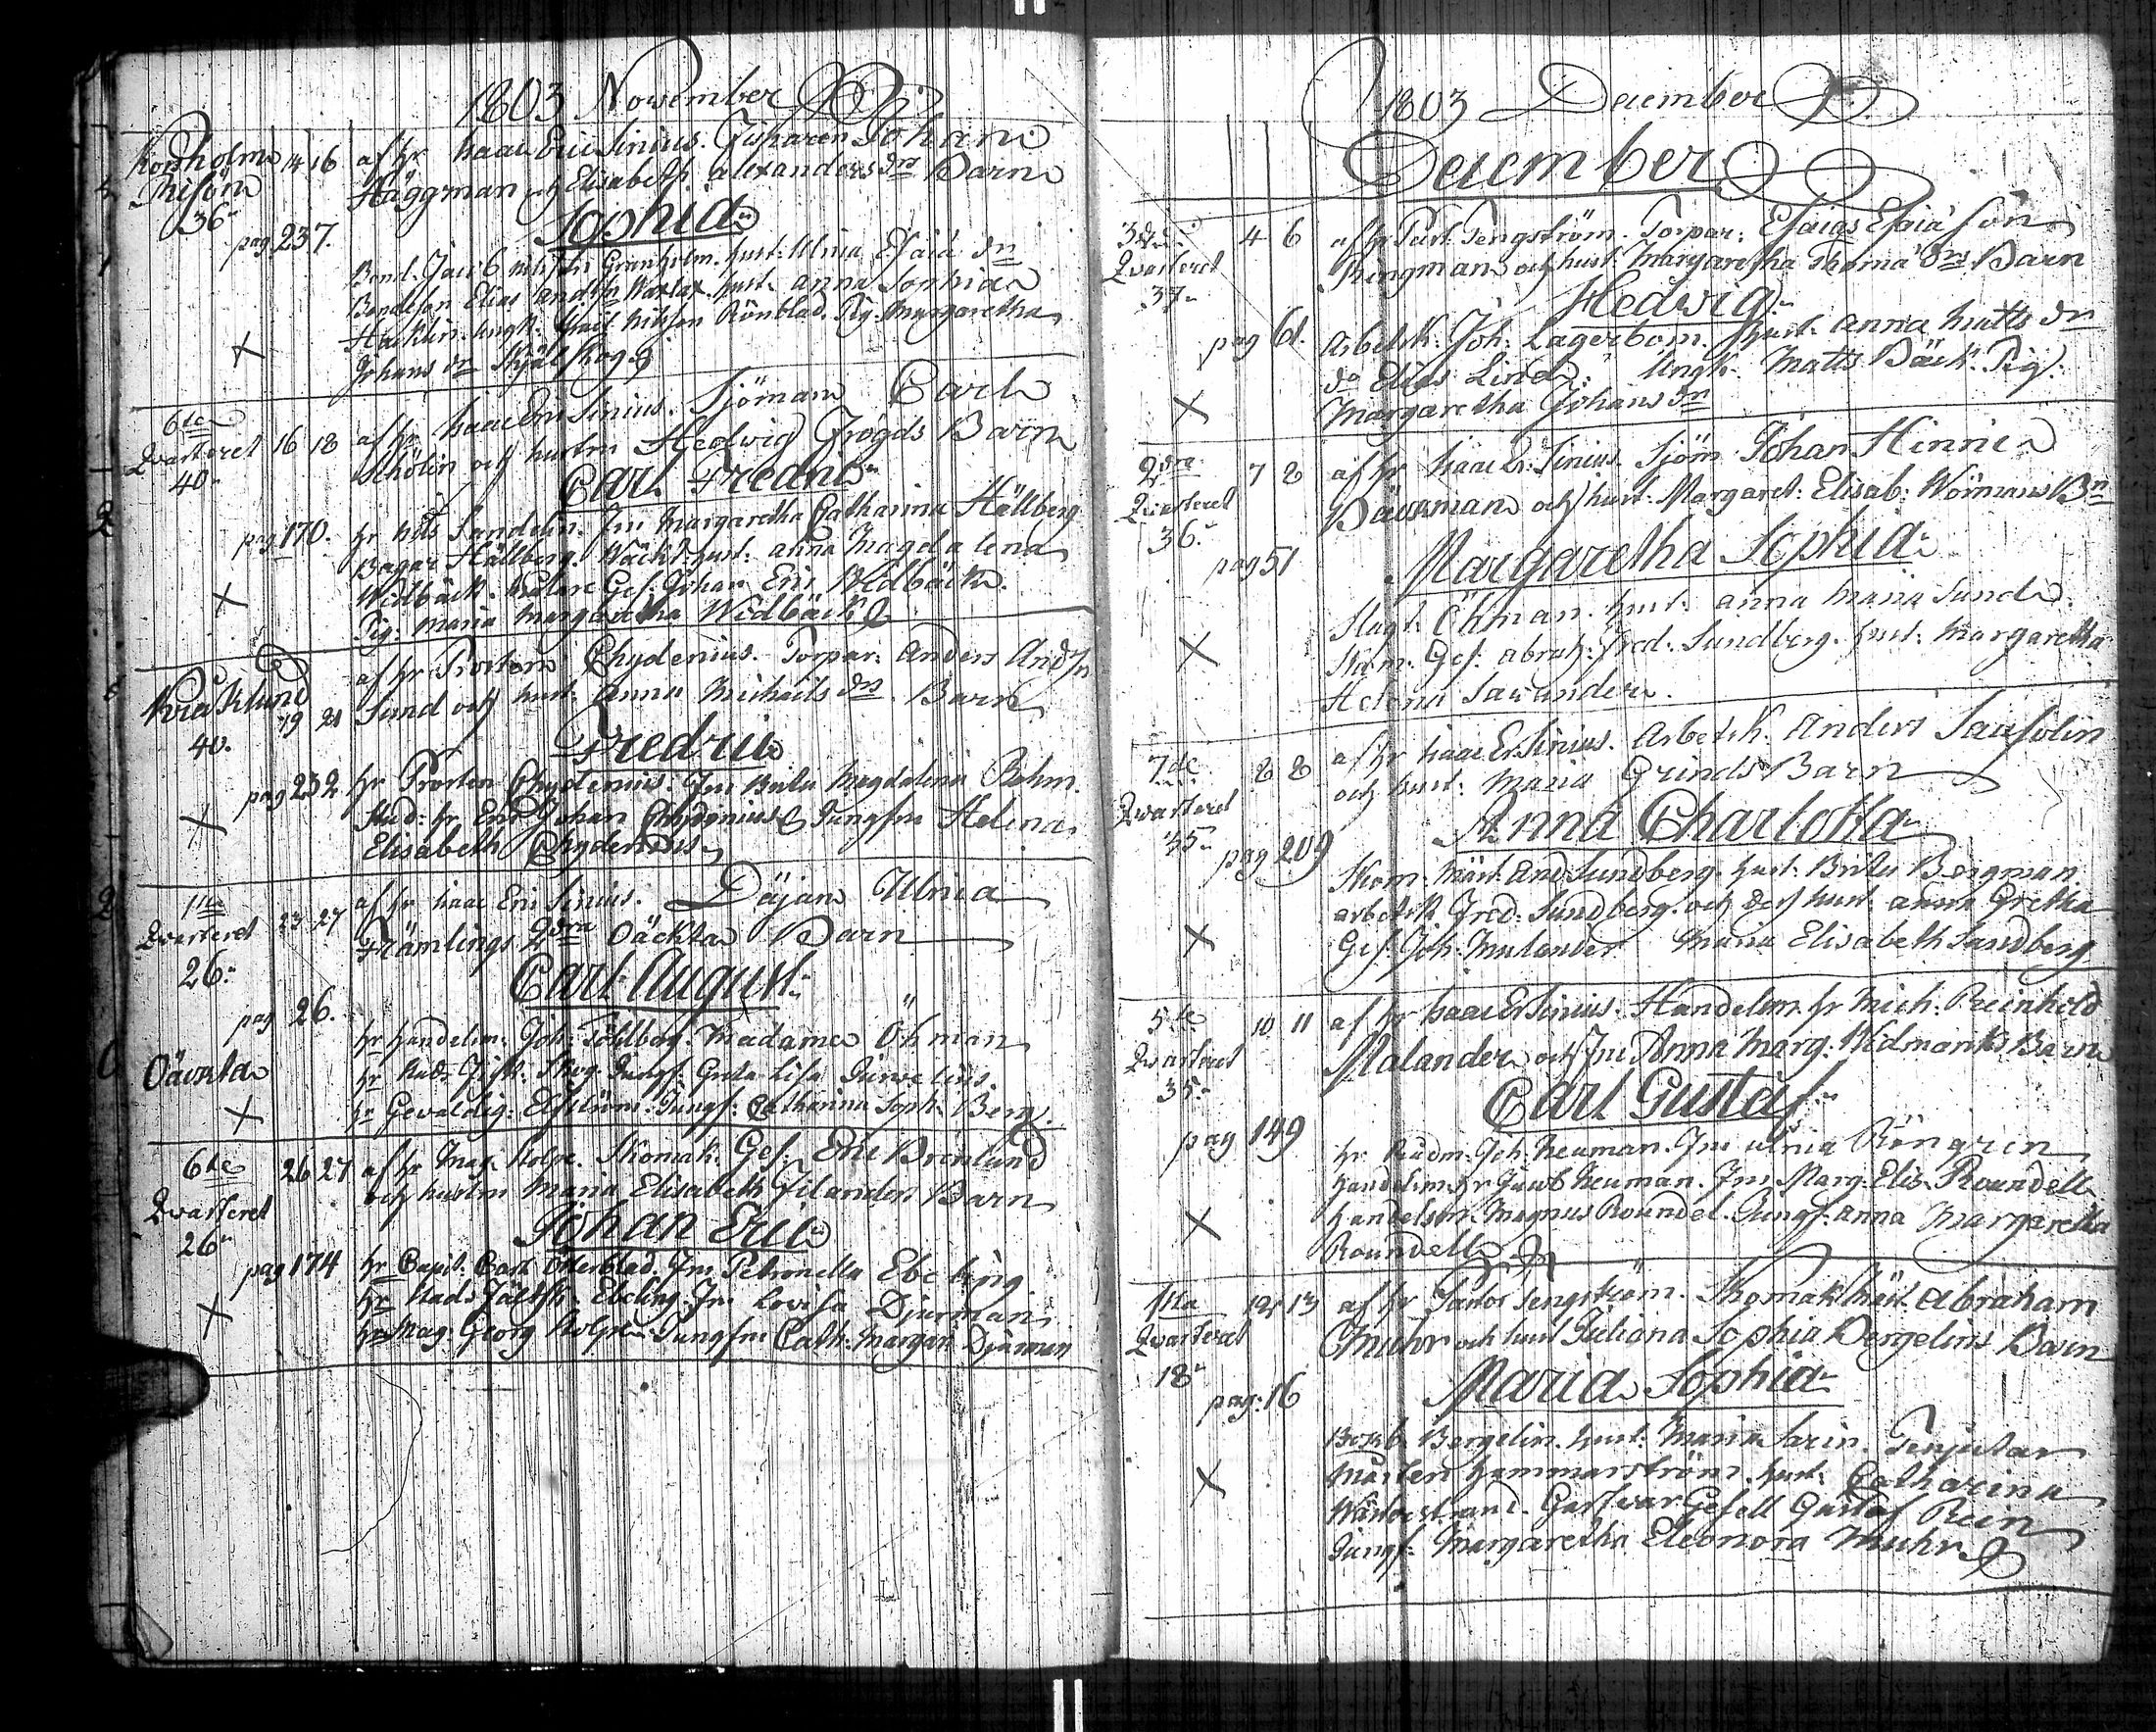 1803 November
Korsholm 14 16 af hr Isaac Eric Sinius. Fiskaren Johan
Häggman och Elisabeth Alexanders dr Barn
36
Sophia
pag 237.
Bond. Jacob Granholm. hust: Ulrica Esaiæ dr
Bondeson Elias And:sn hust: Anna Sophia
ungk: Nilsson Rönblad. Pig: Margaretha
Johans dr
6te
Qvarteret 16 18 af hr Isaac Eric Sinius. Sjöman Carl
och hustru Hedvig Frögds Barn
40
Carl Fredric
pag 170. hr Nils Sandelin. Fru Margaretha Catharina Hällberg
Bagar Hällberg. Wäckt: hust: Anna Magdalena
Widbäck. Målare Ges. Johan Eric Widbäck.
Pig: Maria Margaretha Widbäck
Kråklund
19 21 af hr Prosten Chydenius. Torpar: Anders And:sn
Sund och hust: Anna Michaels dr Barn
40.
Fredric
pag 232 hr Prosten Chydenius. Fru Brita Magdalena Bohm.
Stud: hr Eric Johan Chydenius Jungfru Helena
Elisabeth Chydenius
1sta
Qvarteret 23 27 af hr Isaac Eric Sinius. Däjan Ulrica
Främlings 2dra Oäckta Barn
26
Carl August
pag 26.
hr Handelsm. Joh: Madame Öhman
Oäckta Skog Jungf. Greta Lisa
hr Gevaldig: Elfström. Jungf: Catharina Soph: Berg.
6te
Qvarteret 26 27 af hr Mag: Kolpe. Skomak: Ges. Eric Brenlund
och hustru Maria Elisabeth Filanders Barn
26
Johan Eric
pag 174 hr Capit: Carl Österblad Fru Petronella Ebeling
hr Ebeling Fru Lovisa Djurman
hr Mag: Georg Kolpe Jungfru Cath: Margar: Djurman
1803 December
December
3dje
Qvarteret 4 6 af hr Past: Tengström. Torpar: Esaias Esaiæ son
Ringman och hust: Margaretha Thomæ drs Barn
37
Hedvig
pag 61. Arbetsk: Joh: Lagerbom. hust: Anna Matts dr
do Elias Lind. Ungk: Matts Bäck. Pig:
Margaretha Johans dr
2dra
Qvarteret 7 8 af hr Isaac Er: Sinius. Sjöm: Johan Hinric
Däckman och hust: Margaret: Elisab: Wörmans Bn
36
Margaretha Sophia
pag 51
Slagt: Öhman. hust: Anna Maria Sund.
Skom: Ges: Abrah: Fred: Sundberg. hust: Margaretha
Helena Savander.
7de
Qvarteret 8 8 af hr Isaac Er Sinius. Arbetsk: Anders Saufolin
och hust: Maria Grinds Barn
35
Anna Charlotta
pag 209
Skom: Mäst: And Sundberg. hust: Brita Bergman
arbetsk Fred: Sundberg. och des hust Anna Gretha
Ges. Joh: Malander Maria Elisabeth Sandberg
5te
Qvarteret 10 11 af hr Isaac Er Sinius. Handelsm. hr Mich: Reinhold
Malander och Fru Anna Marg: Widmarks Barn
35
Carl Gustaf
pag 149 hr Rådm. Joh. Neuman. Fru Ulrica Röngren
Handelsm. hr Jacob Neuman. Fru Marg: Elis: Roundell
Handelsm. Magnus Roundel. Jungf: Anna Margaretha
Roundell
1sta
Qvarteret 12 13 af hr Pastor Tengström. Skomak: Mäst: Abraham
Muhr och hust Juliana Sophia Bergelins Barn
18
Maria Sophia
pag: 16
Bergelin. hust: Maria Sarin.
Mårten Hammarström. hust: Catharina
Garfvar Gesell Gustaf Rein
Jungf: Margaretha Eleonora Muhr